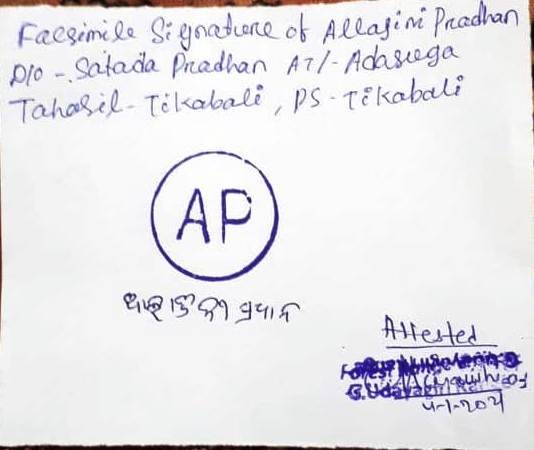 Facsimile Signature of Allasini Pradhan
D/o - Satada Pradhan AT/- Adasuga
Tahasil - Tikabali, PS - Tikabali
AP
ପ୍ରଧାନ
Attested
Forest
G. Udayagiri
4-1-2021